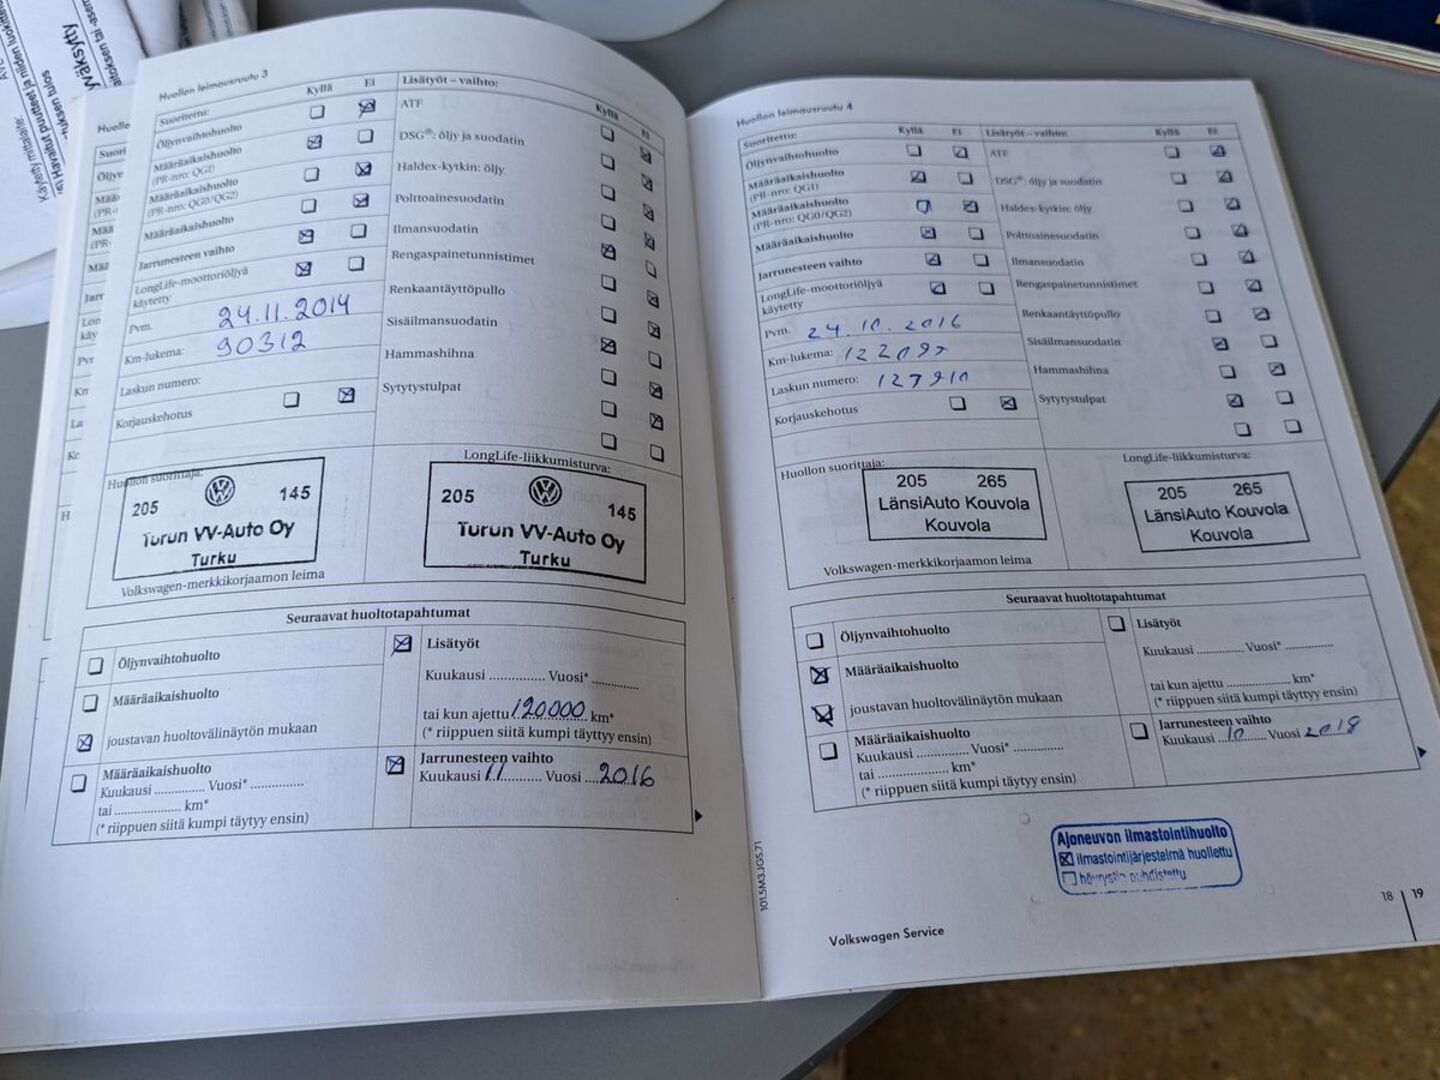 Huollon leimausruutu 3
Suoritettu: Kyllä Ei Lisätyöt – vaihto: Kyllä Ei
Öljynvaihtohuolto
Määräaikaishuolto
(PR-nro: QG1)
Määräaikaishuolto
(PR-nro: QG0/QG2)
Määräaikaishuolto
Jarrunesteen vaihto
LongLife-moottoriöljyä
käytetty
Pvm. 24.11.2014
Km-lukema: 90312
Laskun numero:
Korjauskehotus
ATF
DSG®: öljy ja suodatin
Haldex-kytkin: öljy
Polttoainesuodatin
Ilmansuodatin
Rengaspainetunnistimet
Renkaantäyttöpullo
Sisäilmansuodatin
Hammashihna
Sytytystulpat
Huollon suorittaja:
205 145
Turun VV-Auto Oy
Turku
Volkswagen-merkkikorjaamon leima
LongLife-liikkumisturva:
205 145
Turun VV-Auto Oy
Turku
Seuraavat huoltotapahtumat
Öljynvaihtohuolto
Määräaikaishuolto
joustavan huoltovälinäytön mukaan
Määräaikaishuolto
Kuukausi .............. Vuosi* ...............
tai ..................... km*
(* riippuen siitä kumpi täyttyy ensin)
Lisätyöt
Kuukausi .............. Vuosi* .............
tai kun ajettu 120000 km*
(* riippuen siitä kumpi täyttyy ensin)
Jarrunesteen vaihto
Kuukausi 11 Vuosi 2016
Huollon leimausruutu 4
Suoritettu: Kyllä Ei Lisätyöt – vaihto: Kyllä Ei
Öljynvaihtohuolto
Määräaikaishuolto
(PR-nro: QG1)
Määräaikaishuolto
(PR-nro: QG0/QG2)
Määräaikaishuolto
Jarrunesteen vaihto
LongLife-moottoriöljyä
käytetty
Pvm. 24.10.2016
Km-lukema:
Laskun numero:
Korjauskehotus
ATF
DSG®: öljy ja suodatin
Haldex-kytkin: öljy
Polttoainesuodatin
Ilmansuodatin
Rengaspainetunnistimet
Renkaantäyttöpullo
Sisäilmansuodatin
Hammashihna
Sytytystulpat
Huollon suorittaja:
205 265
LänsiAuto Kouvola
Kouvola
Volkswagen-merkkikorjaamon leima
LongLife-liikkumisturva:
205 265
LänsiAuto Kouvola
Kouvola
Seuraavat huoltotapahtumat
Öljynvaihtohuolto
Määräaikaishuolto
joustavan huoltovälinäytön mukaan
Määräaikaishuolto
Kuukausi .............. Vuosi* ..............
tai .................... km*
(* riippuen siitä kumpi täyttyy ensin)
Lisätyöt
Kuukausi .............. Vuosi* ..............
tai kun ajettu ................... km*
(* riippuen siitä kumpi täyttyy ensin)
Jarrunesteen vaihto
Kuukausi 10 Vuosi 2018
Ajoneuvon ilmastointihuolto
ilmastointijärjestelmä huollettu
höyrystin puhdistettu
101.5M3.JGS.71
Volkswagen Service
18 | 19